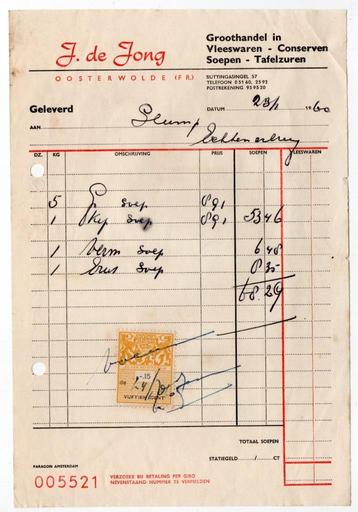 J. de Jong
OOSTERWOLDE (FR.)
Groothandel in
Vleeswaren - Conserven
Soepen - Tafelzuren
SLUTTINGASINGEL 57
TELEFOON 05160, 2592
POSTREKENING 959520
Geleverd
DATUM 23/1 1960
AAN
Echtenerbrug
DZ. KG OMSCHRIJVING PRIJS SOEPEN VLEESWAREN
5 soep 891
1 Kip soep 891 53 46
1 Verm soep 6 48
1 soep 8 35
68 29
-.15
de 24/
VIJFTIEN CENT
TOTAAL SOEPEN
STATIEGELD / CT
PARAGON AMSTERDAM
005521
VERZOEKE BIJ BETALING PER GIRO
NEVENSTAAND NUMMER TE VERMELDEN